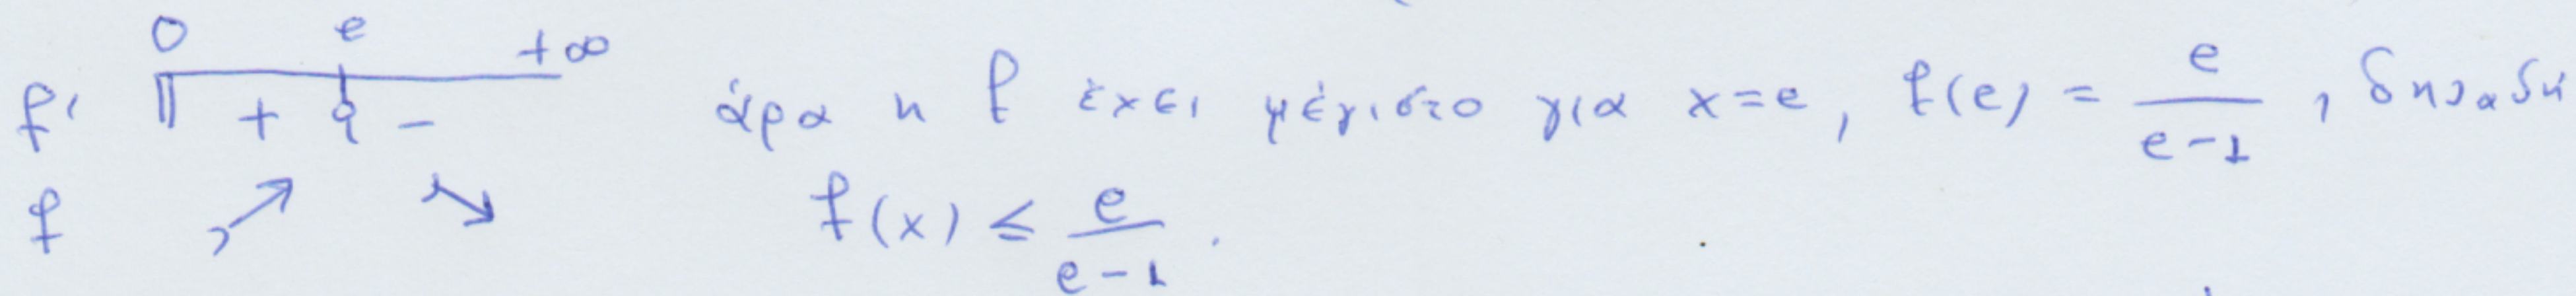 0 e +∞
f' || + 0 - άρα η f έχει μέγιστο για x=e, f(e) = e/(e-1), δηλαδή
f ↗ ↘ f(x) ≤ e/(e-1).